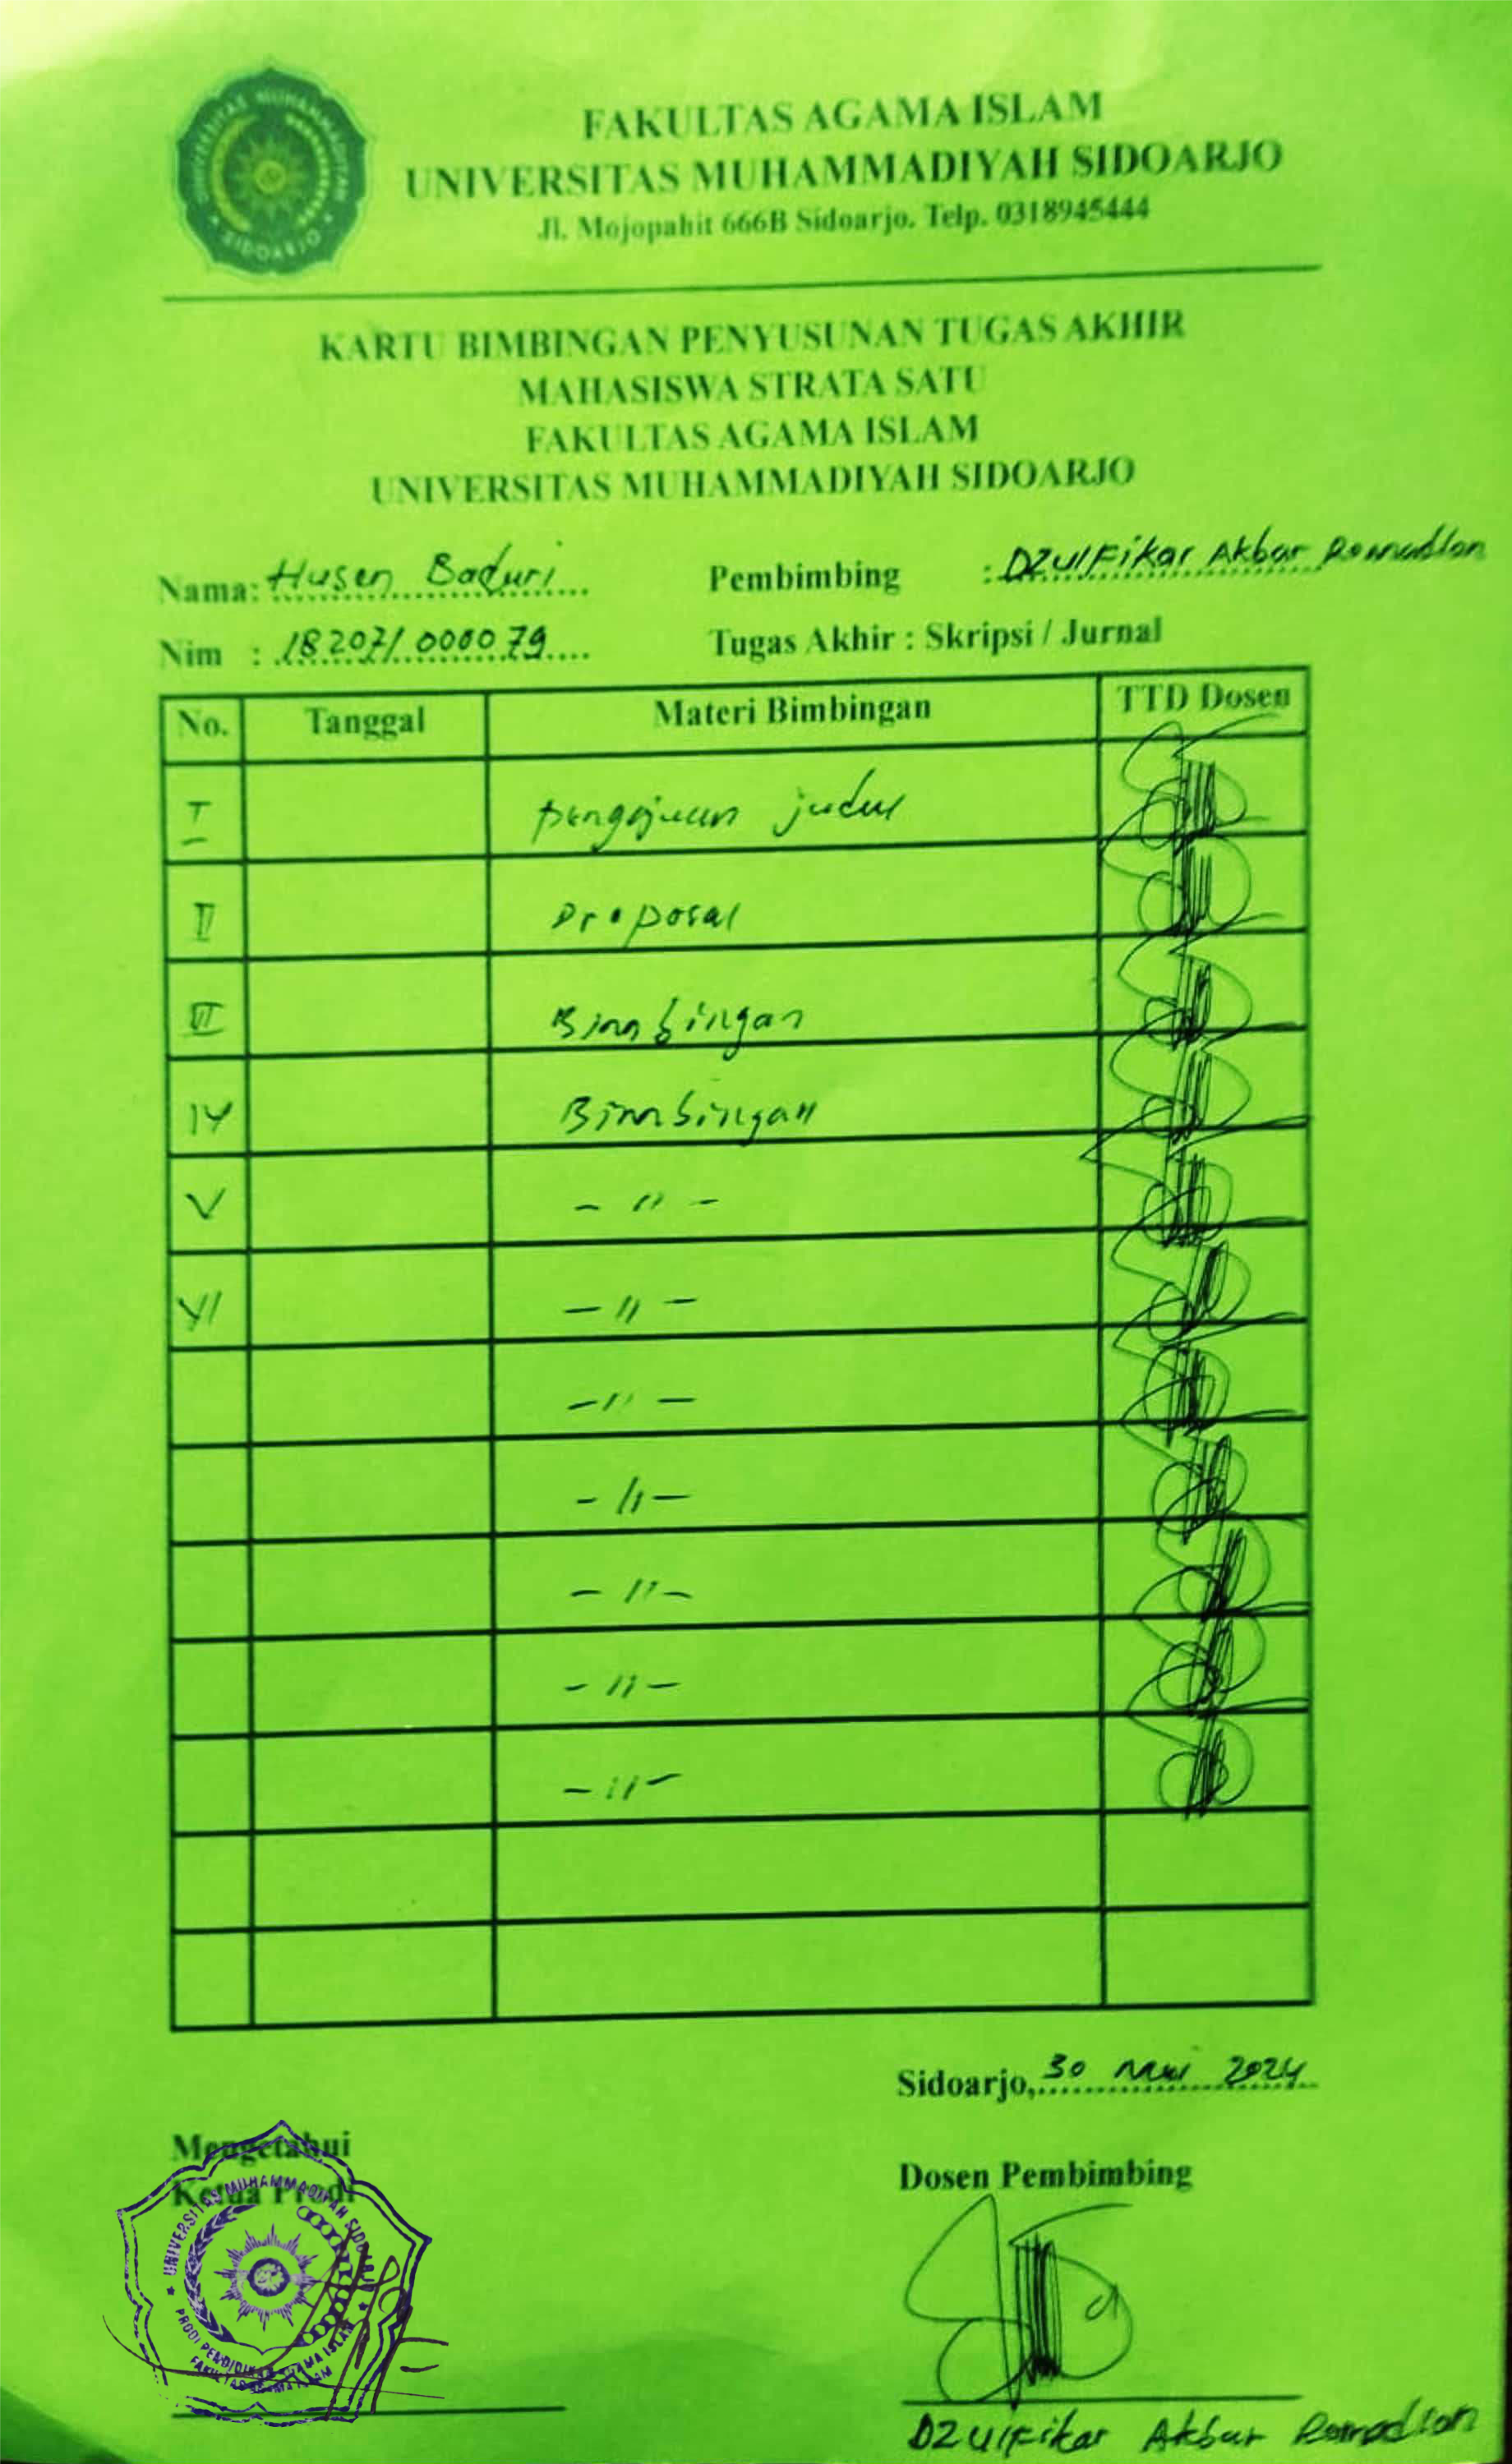 UNIVERSITAS MUHAMMADIYAH
SIDOARJO
FAKULTAS AGAMA ISLAM
UNIVERSITAS MUHAMMADIYAH SIDOARJO
Jl. Mojopahit 666B Sidoarjo. Telp. 0318945444
KARTU BIMBINGAN PENYUSUNAN TUGAS AKHIR
MAHASISWA STRATA SATU
FAKULTAS AGAMA ISLAM
UNIVERSITAS MUHAMMADIYAH SIDOARJO
Nama: Husen Baduri Pembimbing : Dzulfikar Akbar Romadlon
Nim : 182071000079 Tugas Akhir : Skripsi / Jurnal
No. Tanggal Materi Bimbingan TTD Dosen
I pengajuan judul
II Proposal
III Bimbingan
IV Bimbingan
V - " -
VI - " -
- " -
- " -
- " -
- " -
- " -
Sidoarjo, 30 Mei 2024
Mengetahui
Ketua Prodi
Dosen Pembimbing
UNIVERSITAS MUHAMMADIYAH SIDOARJO
PRODI PENDIDIKAN AGAMA ISLAM
FAKULTAS AGAMA ISLAM
Dzulfikar Akbar Romadlon